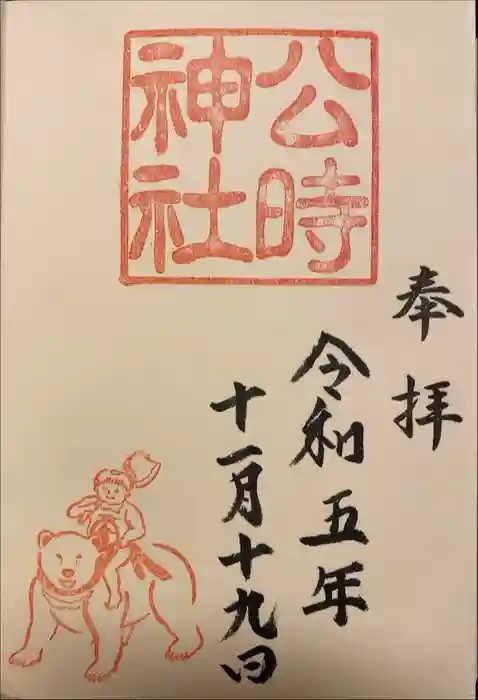 公時
神社
奉拝
令和五年
十一月十九日